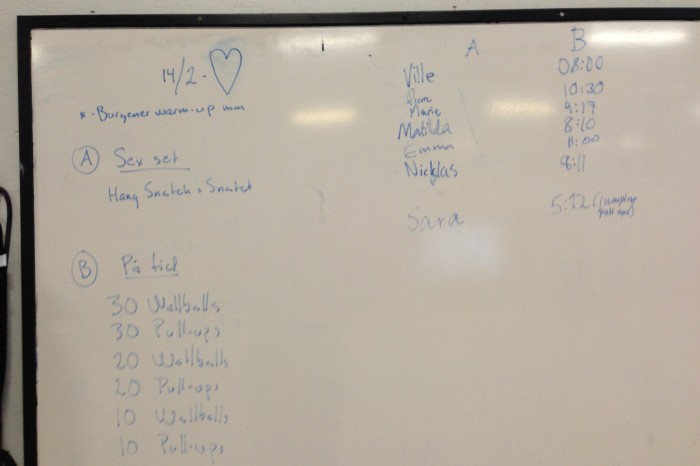 14/2 - ♡
* - Burgener warm-up mm
A Sex set
Hang Snatch + Snatch
B På tid
30 Wallballs
30 Pull-ups
20 Wallballs
20 Pull-ups
10 Wallballs
10 Pull-ups
A B
Ville 08:00
10:30
Marie 9:17
Matilda 8:10
Emma 11:00
Nicklas 8:11
Sara 5:12 (jumping
pull ups)